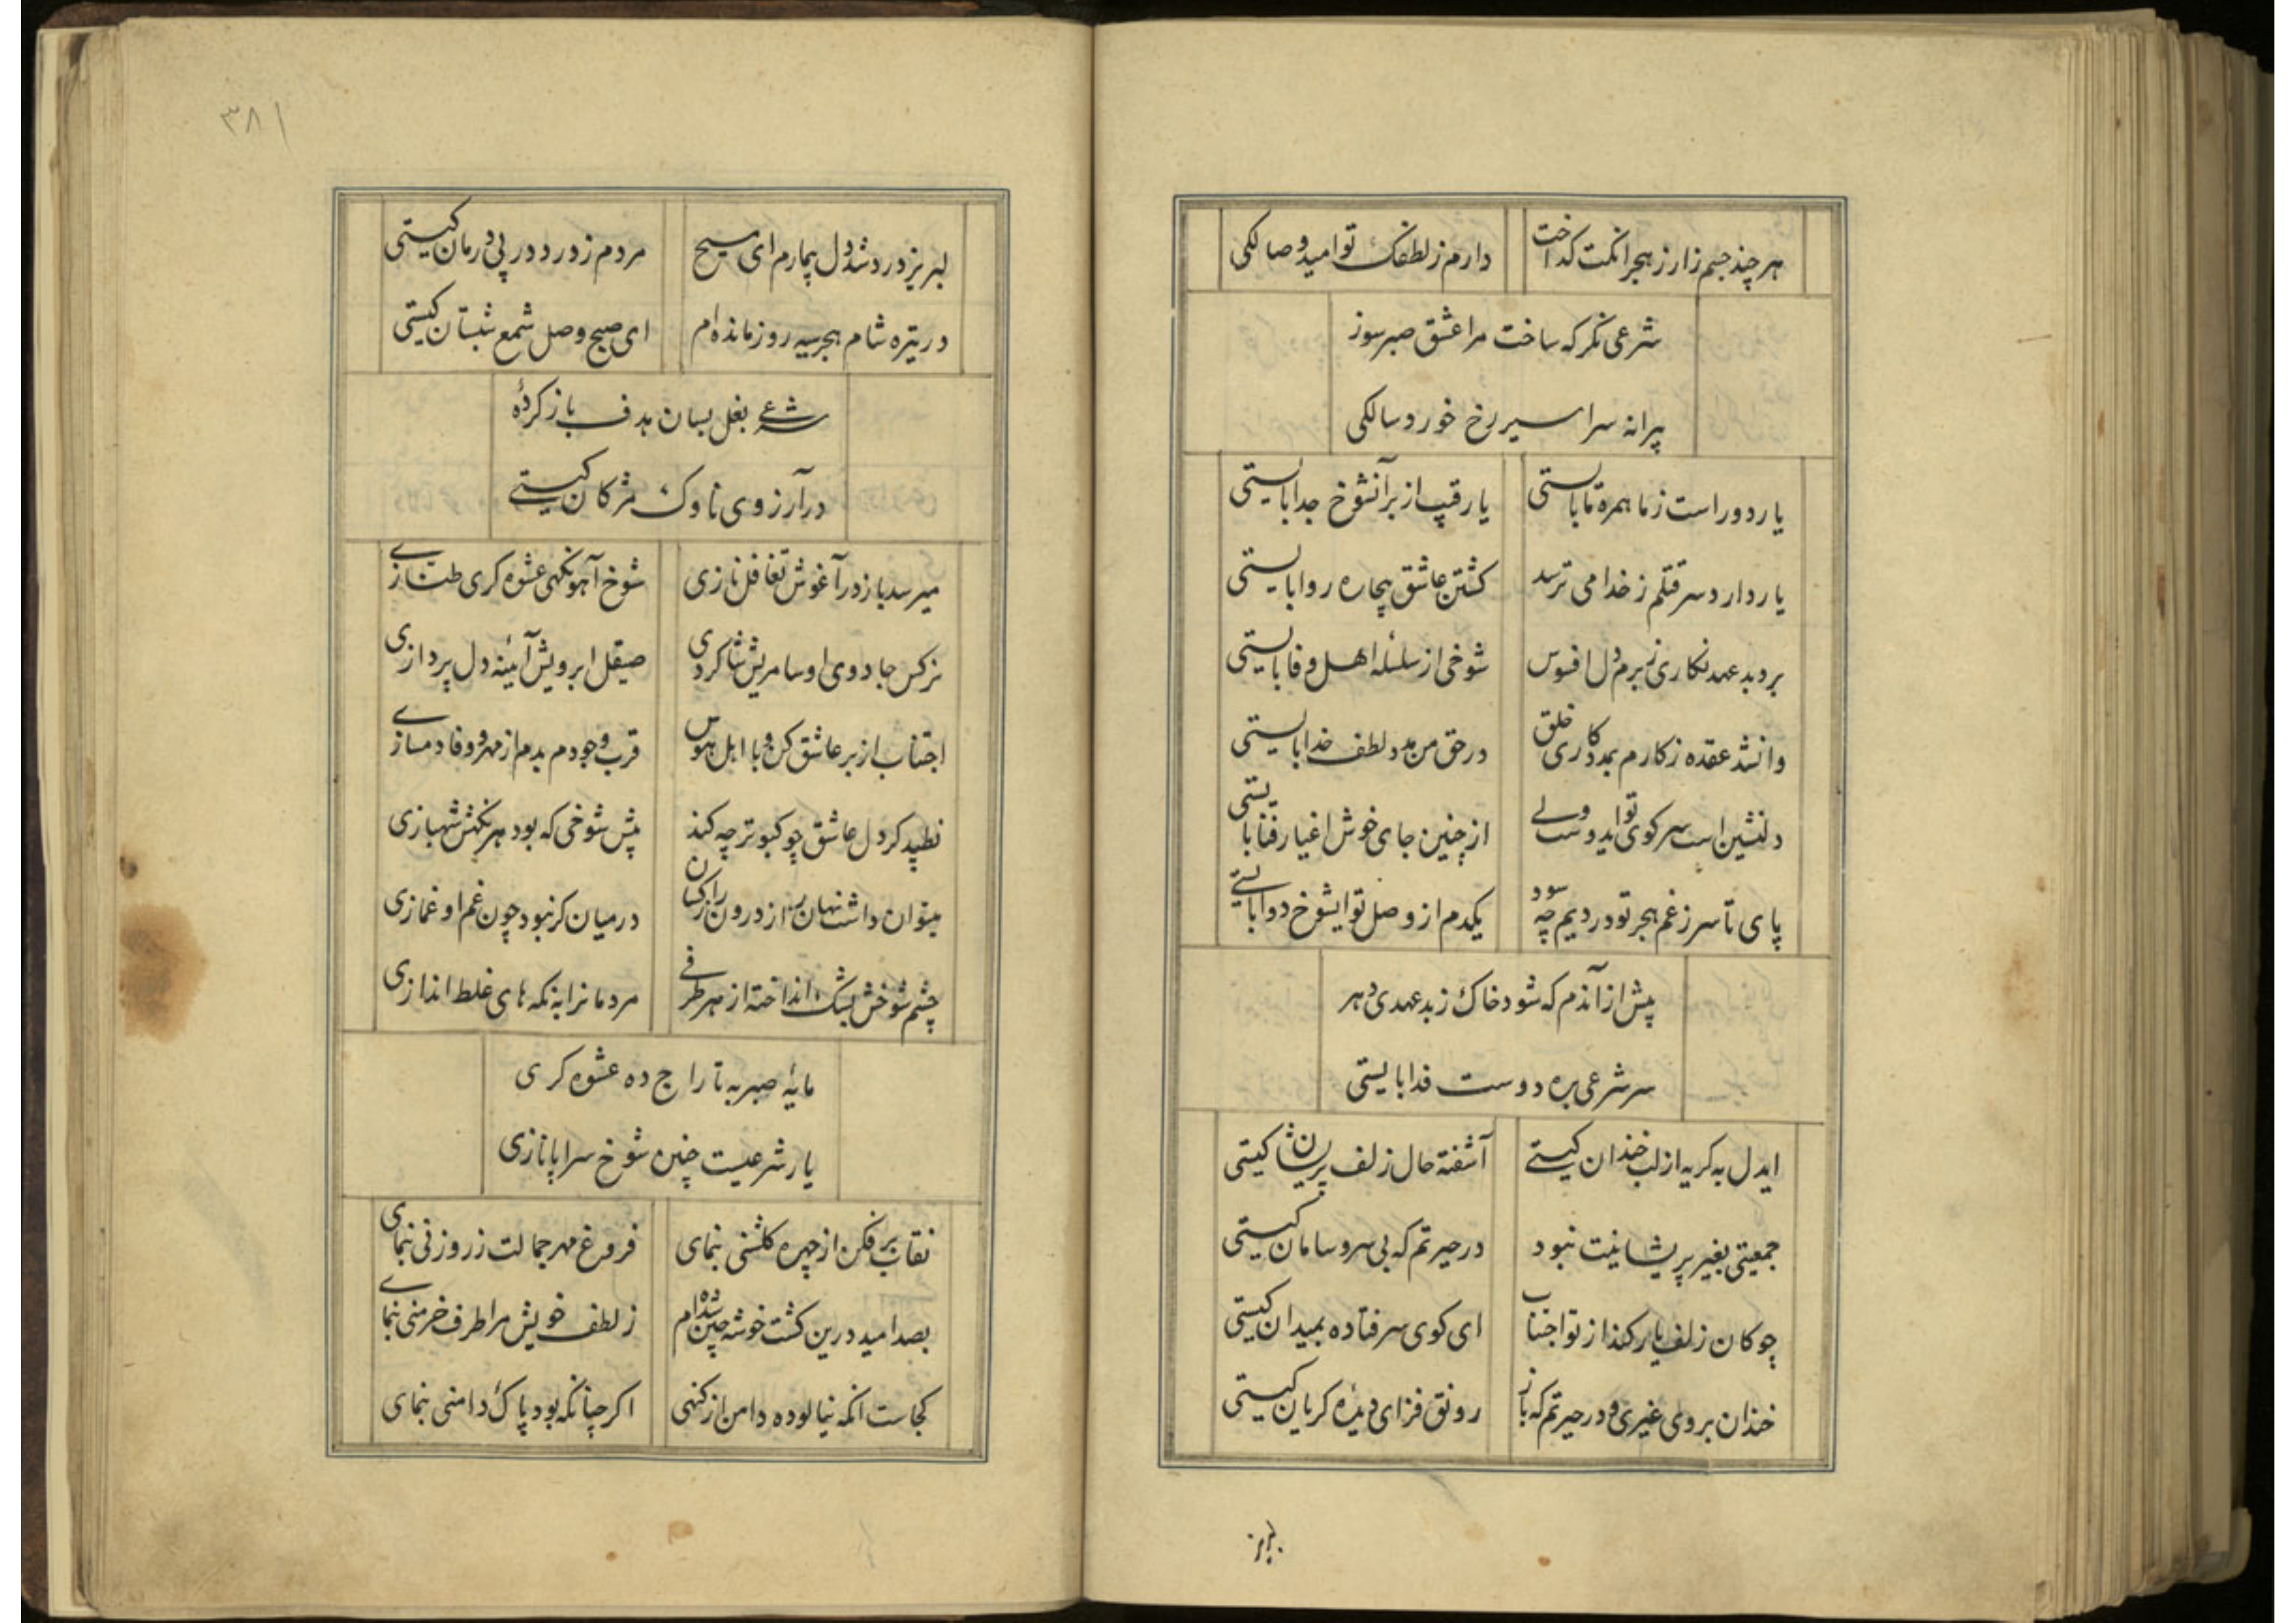 هر چند جسم زار ز هجرانکت کداخت
دارم ز لطفک تو امید وصالکی
شرعی نکر که ساخت مرا عشق صبر سوز
پیرانه سر اسیر رخ خورد سالکی
یار دور است ز ما همره ما بایستی
یا رقیب از بر آنشوخ جدا بایستی
یار دارد سر قتلم ز خدا می ترسد
کشتن عاشق بیچاره روا بایستی
برد بد عهد نکاری ز برم دل افسوس
شوخی از سلسله اهل وفا بایستی
وانشد عقده ز کارم بمددکاری خلق
در حق من مدد لطف خدا بایستی
دلنشین است سر کوی تو ایدوست ولی
از چنین جای خوش اغیار رفتا بایستی
پای تا سر ز غم هجر تو دردیم چه سود
یکدم از وصل تو ایشوخ دوا بایستی
پیش از آندم که شود خاک ز بد عهدی دهر
سر شرعی بره دوست فدا بایستی
ایدل به کریه از لب خندان کیستی
آشفته حال زلف پریشان کیستی
جمعیتی بغیر پریشانیت نبود
در حیرتم که بی سر و سامان کیستی
چوکان زلف یار کند از تو اجتناب
ای کوی سر فتاده بمیدان کیستی
خندان بروی غیری و در حیرتم که باز
رونق فزای دیدهٔ کریان کیستی
لبریز
۳۸۱
لبریز درد شد دل بیمارم ای مسیح
مردم ز درد در پی درمان کیستی
در تیره شام هجر سیه روز مانده ام
ای صبح وصل شمع شبستان کیستی
شرعی بغل بسان هدف باز کردهٔ
در آرزوی ناوک مژکان کیستی
میرسد باز در آغوش تغافل نازی
شوخ آهو نکهی عشوه کری طنازی
نرکس جادوی او سامریش شاکردی
صیقل ابرویش آئینه دل پردازی
اجتناب از بر عاشق کن و با اهل هوس
قرب وجودم بدم از مهر و وفا دمسازی
نطپد کر دل عاشق چو کبوتر چه کند
پیش شوخی که بود هر نکهش شهبازی
میتوان داشت نهان راز درون را ز کسان
در میان کر نبود چون غم او غمازی
چشم شوخش بشک انداخته از هر طرفی
مردمانرا به نکه های غلط اندازی
مایهٔ صبر به تاراج ده عشوه کری
یار شرعیست چنین شوخ سراپا نازی
نقاب بر فکن از چهره کلشنی بنمای
فروغ مهر جمالت ز روزنی بنمای
بصد امید درین کشت خوشه چین شده ام
ز لطف خویش مرا طرف خرمنی بنمای
کجاست انکه نیالوده دامن از کنهی
اکر چنانکه بود پاک دامنی بنمای